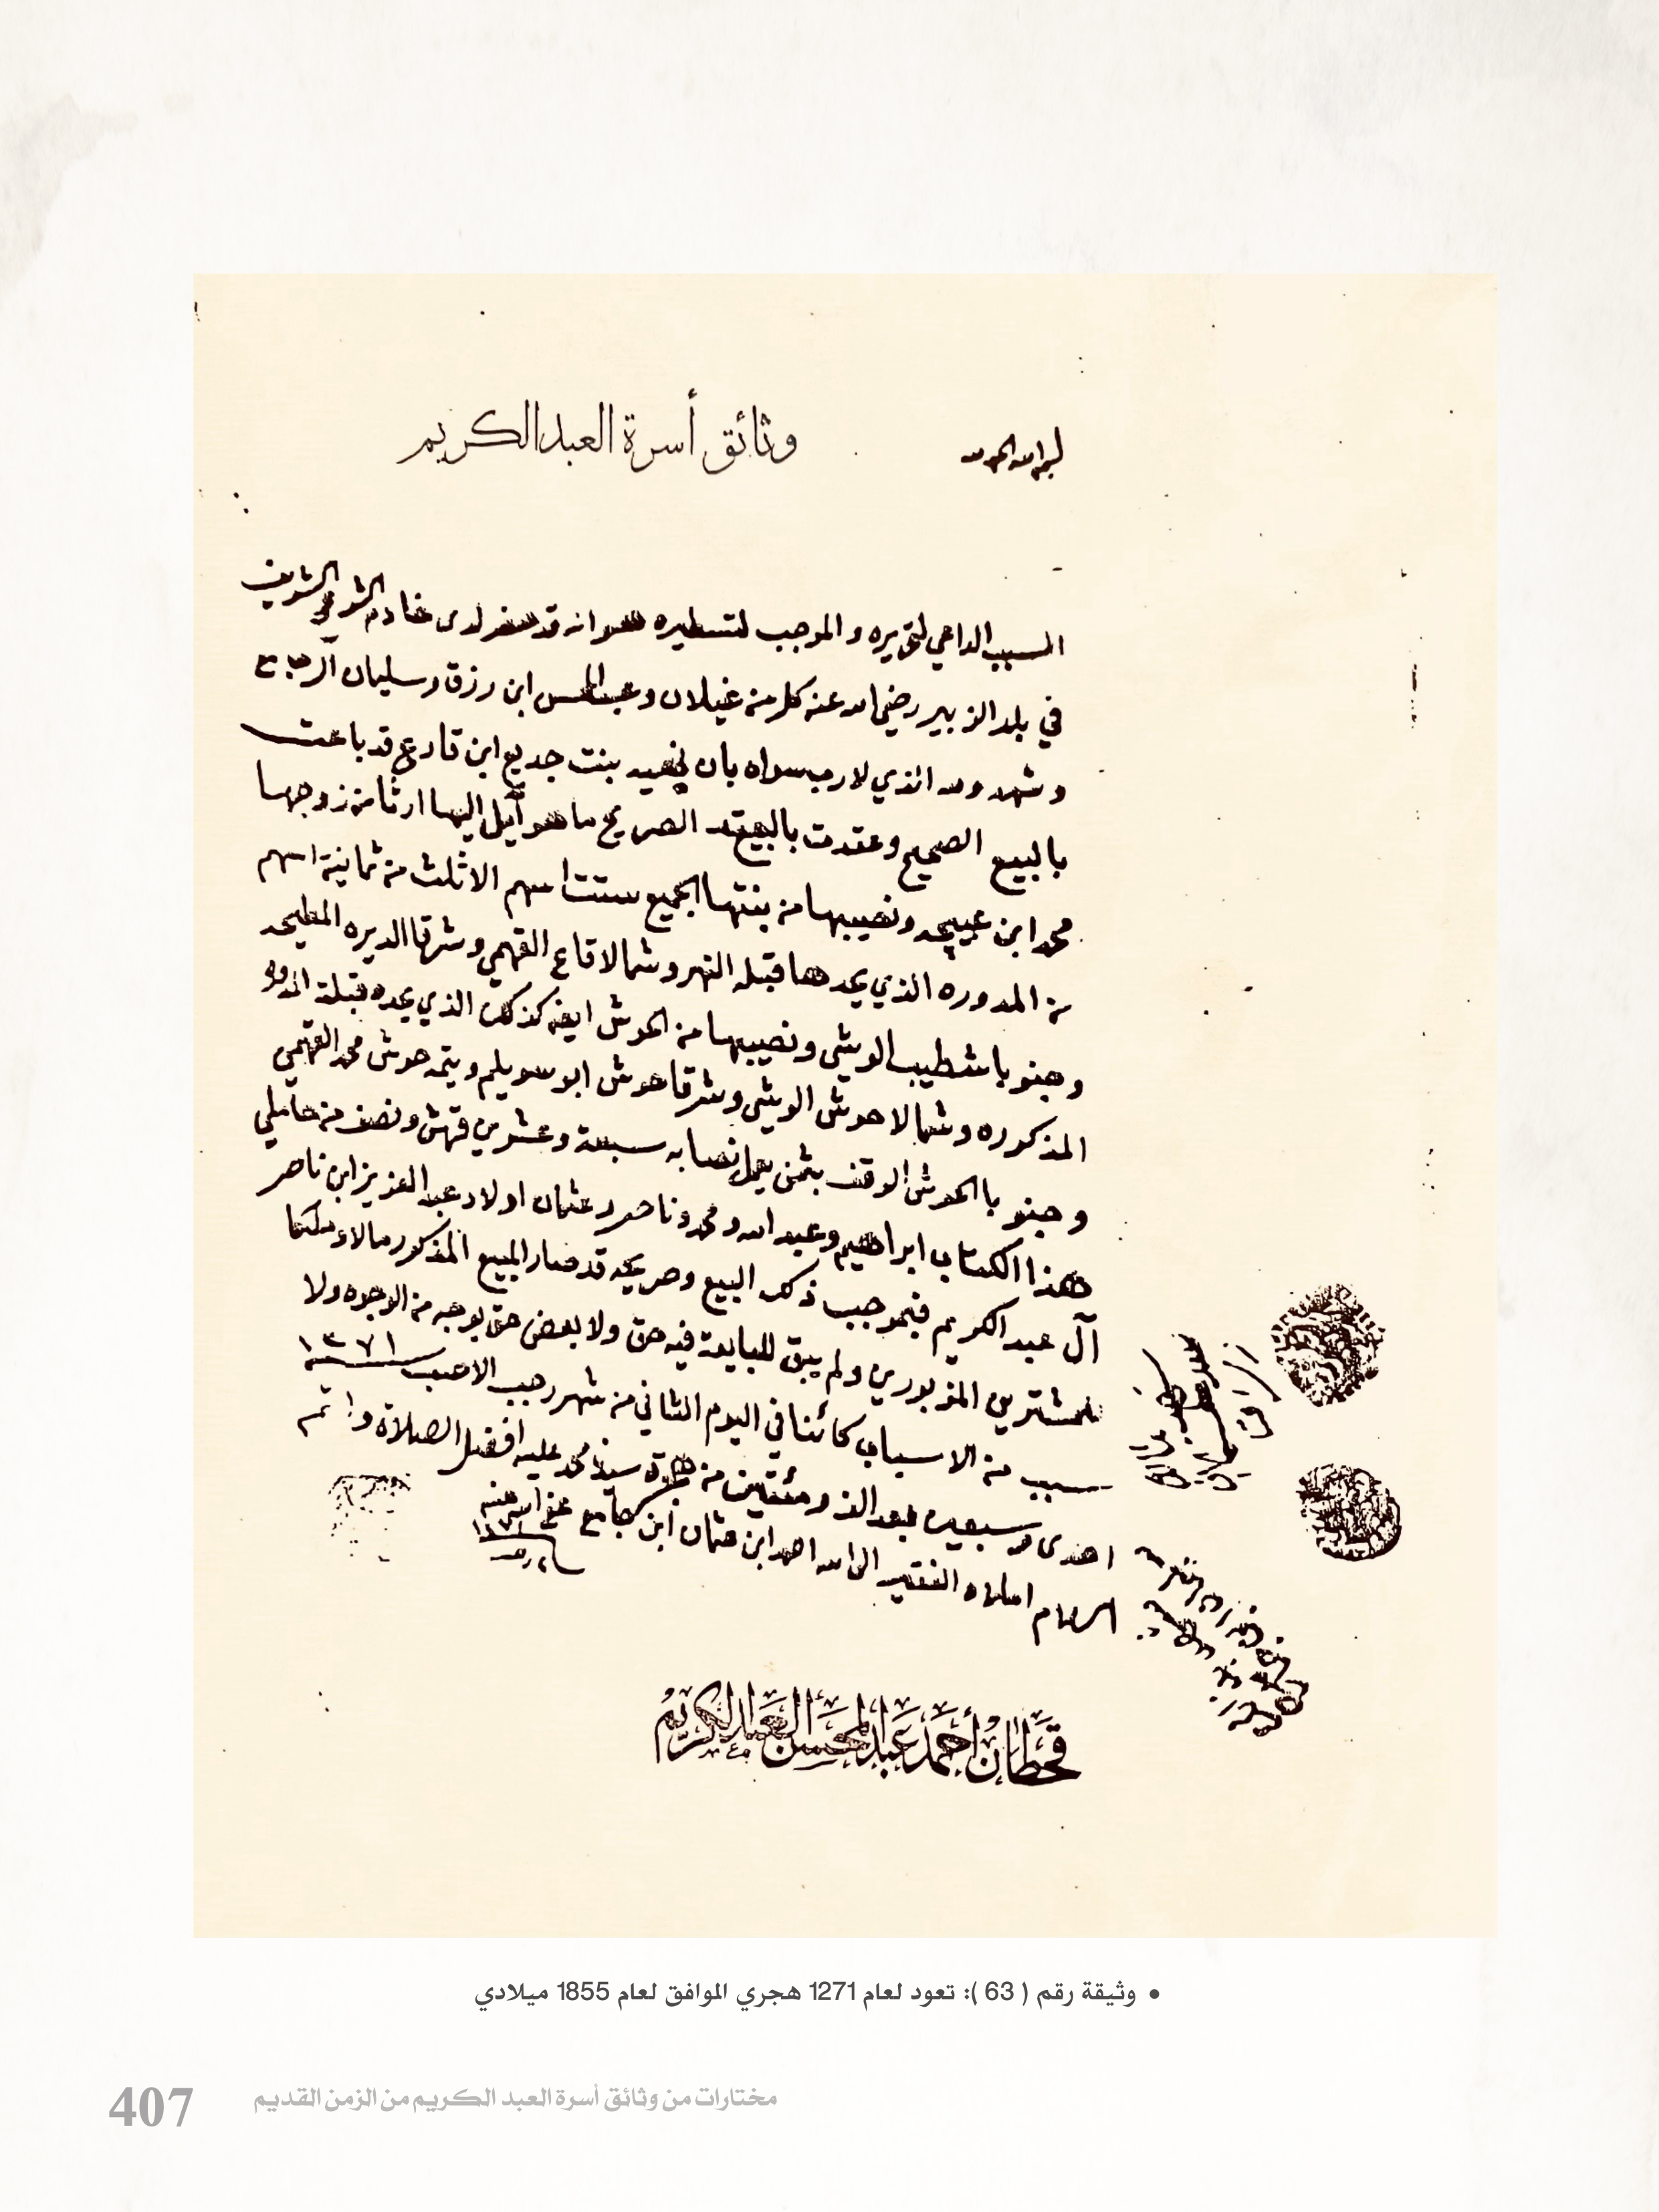 وثائق أسرة العبدالكريم
بسم الله الحمد لله
السبب الداعي لتحريره والموجب لتسطيره هو انه قد حضر لدى خادم الشرع الشريف
في بلد الزبير رضي الله عنه كل من غيلان وعبد المحسن ابن رزق وسليمان
وشهدو لله الذي لا رب سواه بان بنت جديع ابن قارع قد باعت
بالبيع الصحيح وعقدت بالعقد الصريح ما هو آيل اليها ارثا من زوجها
محمد ابن عبيجه ونصيبها من بنتها الجميع ستت اسهم الا ثلث من ثمانية اسهم
من المدوره الذي يحدها قبله النهر وشمالا قاع الفهمي وشرقا الديره المطيحه
وجنوبا شطيب الويشي ونصيبها من الحوش ايضا كذلك الذي يحده قبلة
المذكوره وشمالا حوش الويشي وشرقا حوش ابو سويلم ويتمه حوش محمد الفهمي
وجنوبا الحوش الوقف بثمن نصابه سبعة وعشرين قرش ونصف من حاملي
هذا الكتاب ابراهيم وعبد الله ومحمد وناصر وعثمان اولاد عبد العزيز ابن ناصر
آل عبد الكريم فبموجب ذلك البيع وصريحه قد صار المبيع المذكور مالا وملكا
للمشترين المزبورين ولم يبق للبايعة فيه حق ولا بعض حق بوجه من الوجوه ولا
سبب من الاسباب كائنا في اليوم الثاني من شهر رجب الاصب ١٢٧١
احدى وسبعين بعد الف ومئتين من هجرة سيدنا محمد عليه افضل الصلاة واتم
السلام املاه الفقير الى الله احمد ابن عثمان ابن جامع عفى الله عنه
قحطان أحمد عبدالمحسن العبدالكريم
• وثيقة رقم ( 63 ): تعود لعام 1271 هجري الموافق لعام 1855 ميلادي
مختارات من وثائق أسرة العبد الكريم من الزمن القديم
407